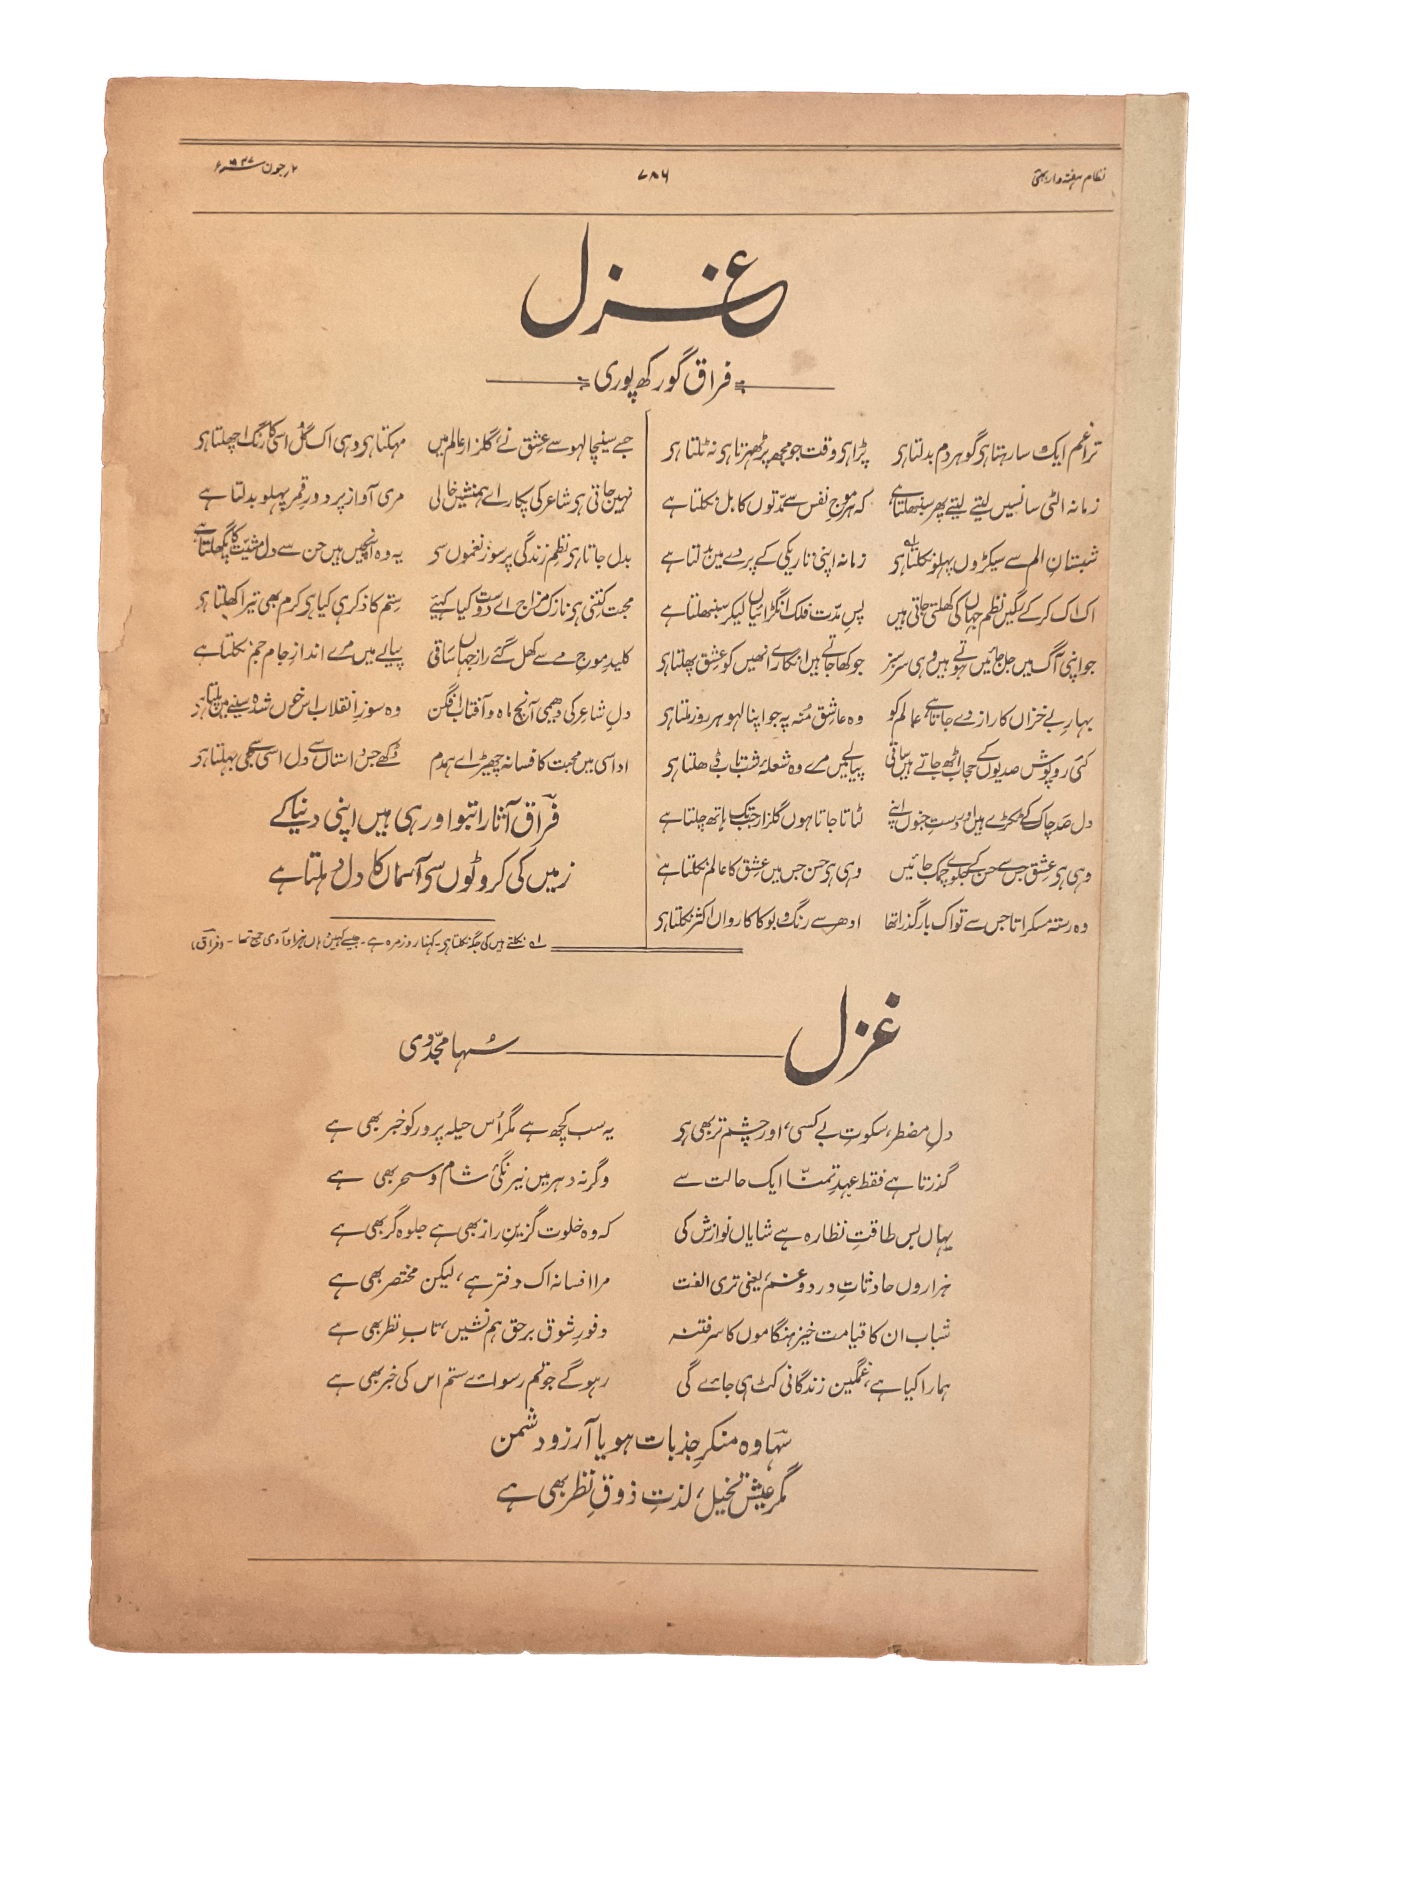 نظام ہفتہ وار بمبئی
۷۸۶
۲؍جون ۱۹۴۷ء
غزل
فراق گورکھپوری
ترا غم ایک سا رہتا ہی گو ہر دم بدلتا ہی پڑا ہی وقت جو مجھ پر ٹھہرتا ہی نہ ٹلتا ہی
زمانہ الٹی سانسیں لیتے لیتے پھر سنبھلتا ہے کہ ہر موجِ نفس سے مدّتوں کا بل نکلتا ہے
شبستانِ الم سے سیکڑوں پہلو نکلتا ہی زمانہ اپنی تاریکی کے پردے میں بدلتا ہے
اک اک کر کے گہیں نظمِ جہاں کی کھلتی جاتی ہیں پسِ مدّت فلک انگڑائیاں لیکر سنبھلتا ہے
جو اپنی آگ میں جل جائیں ہوتے ہیں وہی سرسبز جو کھا جاتے ہیں انگارے انھیں کو عشق پھلتا ہی
بہارِ بے خزاں کا راز دے جاتا ہے عالم کو وہ عاشق مُنہ پہ جو اپنا لہو ہر روز ملتا ہی
کئی روپوش صدیوں کے حجاب اٹھ جاتے ہیں ساقی پیالے میں مرے وہ شعلۂ شب تاب ڈھلتا ہی
دل صد چاک کے ٹکڑے ہیں اور دستِ جنوں اپنے لٹاتا جاتا ہوں گلزار جب تک ہاتھ چلتا ہے
وہی ہی عشق جس سے حسن کے جلوے چمک جائیں وہی ہی حسن جس میں عشق کا عالم نکلتا ہے
وہ رستہ مسکراتا جس سے تو اک بار گذرا تھا ادھر سے رنگ و بو کا کارواں اکثر نکلتا ہی
جسے سینچا لہو سے عشق نے گلزارِ عالم میں مہکتا ہی وہی اک گل اسی کا رنگ اچھلتا ہی
نہیں جاتی ہی شاعر کی پکار اے ہمنشیں خالی مری آواز پر دورِ قمر پہلو بدلتا ہے
بدل جاتا ہی نظمِ زندگی پرسوز نغموں سی یہ وہ آنچیں ہیں جن سے دل مشیّت کا پگھلتا ہے
محبت کتنی ہی نازک مزاج اے دوست کیا کہئے ستم کا ذکر ہی کیا ہی کرم بھی تیرا کھلتا ہی
کلیدِ موجِ مے سے کھل گئے رازِ جہاں ساقی پیالے میں مرے اندازِ جامِ جم نکلتا ہے
دلِ شاعر کی دھیمی آنچ ماہ و آفتاب افگن وہ سوزِ انقلاب اس خوں شدہ سینے میں پلتا ہی
اداسی میں محبت کا فسانہ چھیڑ اے ہمدم دکھے جس داستاں سے دل اسی سے جی بہلتا ہی
فراقؔ آثار اتبو اور ہی ہیں اپنی دنیا کے
زمیں کی کروٹوں سی آسماں کا دل دہلتا ہے
۱ے نکلتے ہیں کی جگہ نکلتا ہی۔ کہنا روزمرہ ہے۔ جیسے کہیں ہاں ہزار آدمی جمع تھا۔ (فراقؔ)
غزل
سُہا مجدّدی
دلِ مضطر، سکوتِ بے کسی، اور چشمِ تر بھی ہی یہ سب کچھ ہے مگر اُس حیلہ پرور کو خبر بھی ہے
گذرتا ہے فقط عہدِ تمنّا ایک حالت سے وگرنہ دہر میں نیرنگئ شام و سحر بھی ہے
یہاں بس طاقتِ نظارہ ہے شایاں نوازش کی کہ وہ خلوت گزینِ راز بھی ہے جلوہ گر بھی ہے
ہزاروں حادثاتِ درد و غم، یعنی تری الفت مرا افسانہ اک دفتر ہے، لیکن مختصر بھی ہے
شباب ان کا قیامت خیز ہنگاموں کا سرفتنہ وفورِ شوق برحق ہم نشیں، تابِ نظر بھی ہے
ہمارا کیا ہے، غمگین زندگانی کٹ ہی جائے گی رہو گے جو تم رسوائے ستم اس کی خبر بھی ہے
سہاؔ وہ منکرِ جذبات ہو یا آرزو دشمن
مگر عیشِ تخیل، لذتِ ذوقِ نظر بھی ہے